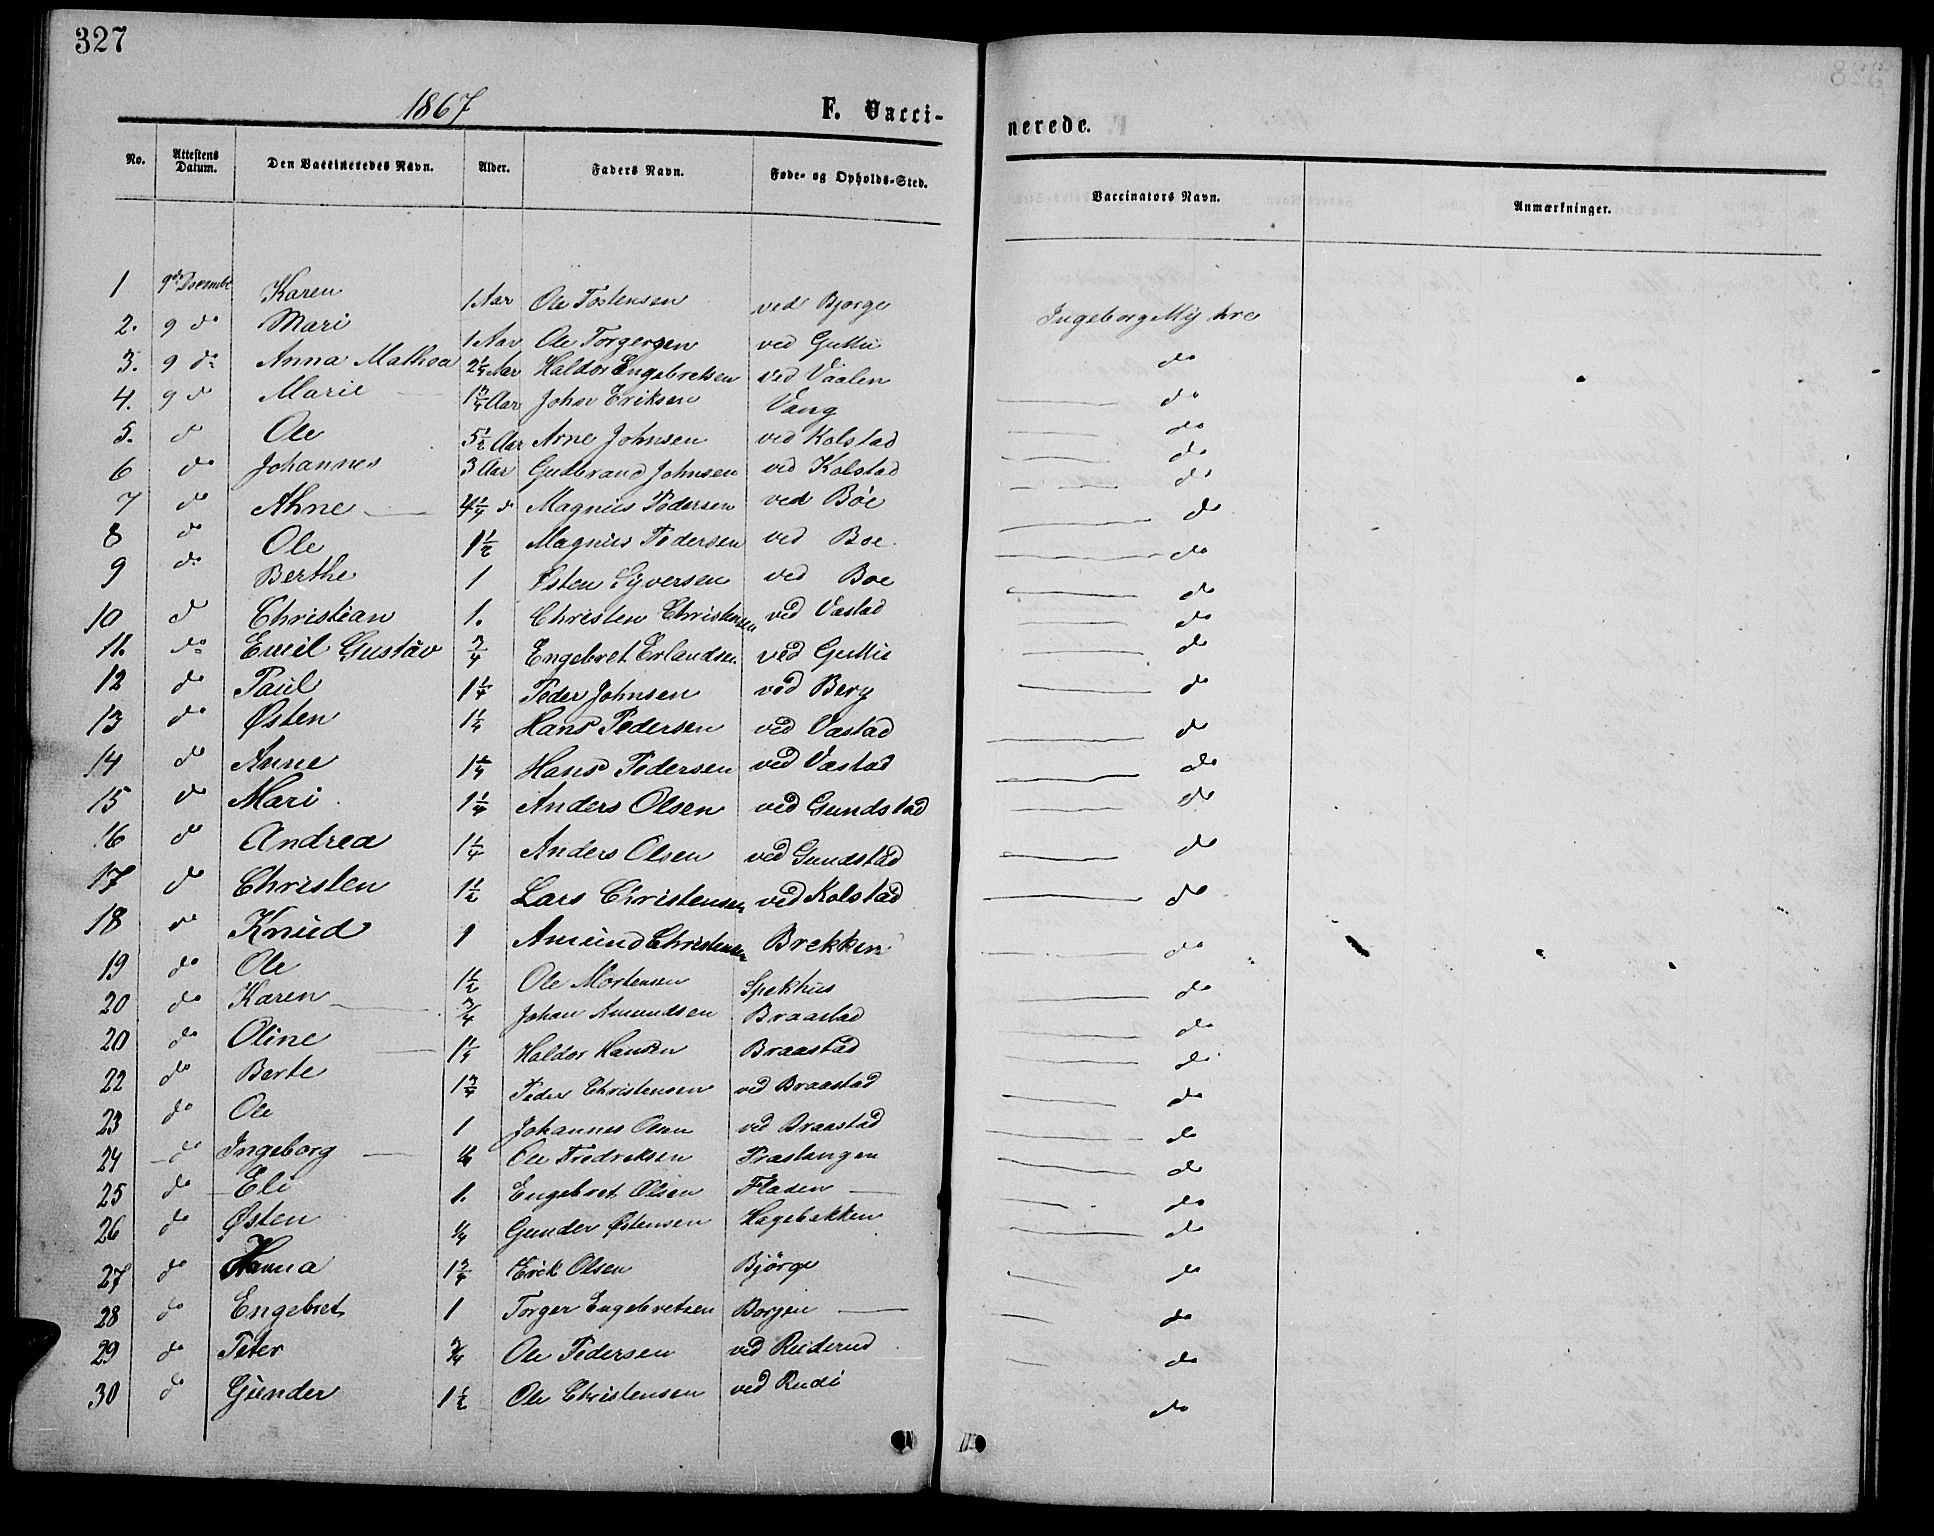 327
1867
F. Vacci-
nerede.
No. Attestens Datum. Den Vaccineredes Navn. Alder. Faders Navn. Føde- og Opholds-Sted. Vaccinators Navn. Anmærkninger.
1 9de Decembr Karen 1 Aar Ole Tostensen ved Bjørge Ingeborg Myhre
2. 9 do Mari 1 Aar Ole Torgersen ved Guttu do
3. 9 do Anna Mathea 2 1/4 Aar Haldor Engebretsen ved Vaalen do
4. 9 d Marie 1 3/4 Aar John Eriksen Vang do
5. d Ole 5 1/2 Aar Arne Johnsen ved Kolstad do
6 do Johannes 3 Aar Gudbrand Johnsen ved Kolstad do
7 do Ahne 4 1/4 d Magnus Pedersen ved Bøe do
8 do Ole 1 1/2 Magnus Pedersen ved Boe do
9 do Berthe 1 Østen Syversen ved Boe do
10 d Christian 1. Christen Christensen ved Vastad do
11. do Emil Gustav 3/4 Engebret Erlandsen ved Guttu do
12 do Paul 1 1/4 Peder Johnsen ved Berg do
13 do Østen 1 1/4 Hans Pedersen ved Vastad do
14 do Anne 1 1/4 Hans Pedersen ved Vastad do
15 do Mari 1 1/4 Anders Olsen ved Gundstad do
16 do Andrea 1 1/4 Anders Olsen ved Gundstad do
17 do Christen 1 1/2 Lars Christensen ved Kolstad do
18 do Knud 1 Amund Christensen Brekken do
19 do Ole 1 1/2 Ole Mortensen Spekhus do
20 do Karen 3/4 Johan Amundsen Braastad do
20 do Oline 1 1/4 Haldor Hansen Braastad do
22 do Berte 1 3/4 Peder Christensen ved Braastad do
23 do Ole 1 Johannes Olsen ved Braastad do
24 do Ingeborg Ole Fredreksen Præstangen do
25 do Eli 1. Engebret Olsen Fladen do
26 do Østen 1/4 Gunder Østensen Hagebakken do
27 do Hanna 1 3/4 Erik Olsen Bjørge do
28 do Engebret 1 Torger Engebretsen Borgen do
29 do Peter 3/4 Ole Pedersen ved Ruderud do
30 do Gunder 1 1/2 Ole Christensen ved Rudi do